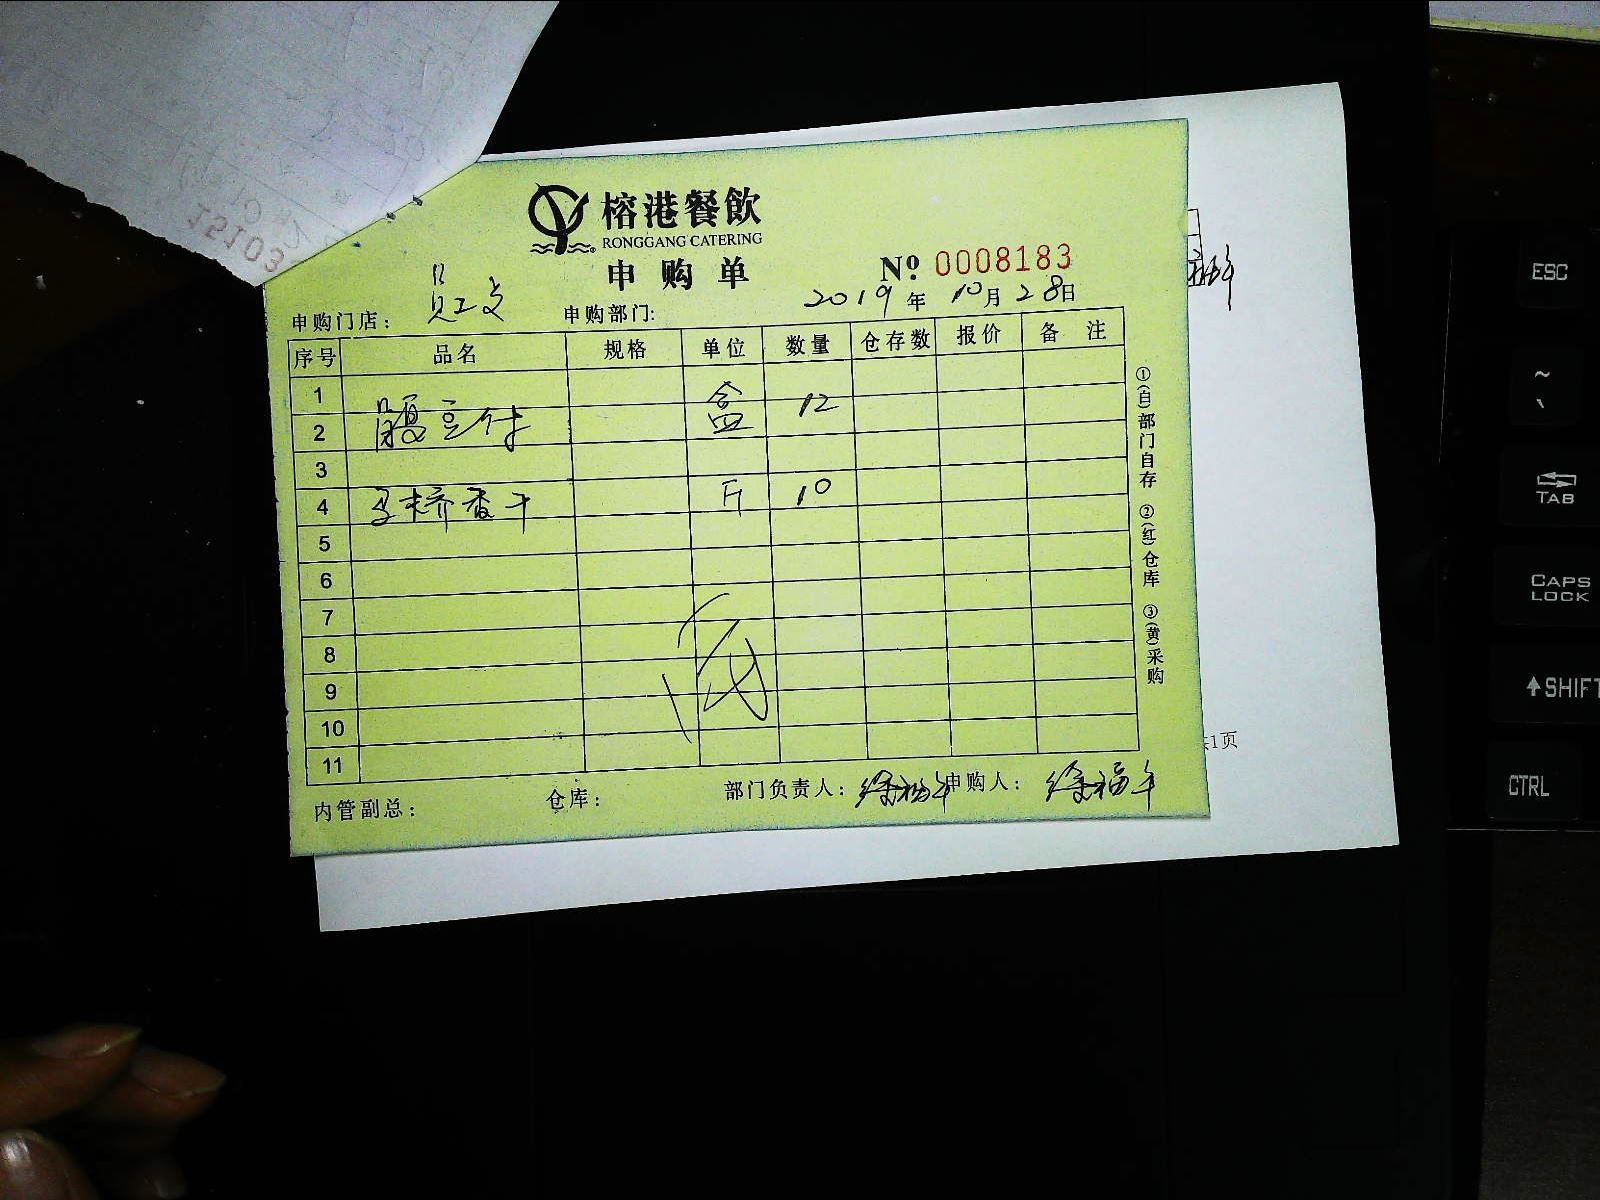 榕港餐飲
RONGGANG CATERING
申购单
№ 0008183
申购门店： 员工 申购部门: 2019年10月28日
序号 品名 规格 单位 数量 仓存数 报价 备注
1
2 豆付 盒 12
3
4 马桥香干 斤 10
5
6
7
8
9
10
11
内管副总： 仓库： 部门负责人：徐福年 申购人：徐福年
①(自)部门自存 ②(红)仓库 ③(黄)采购
1页
ESC
~
TAB
CAPS LOCK
SHIFT
CTRL